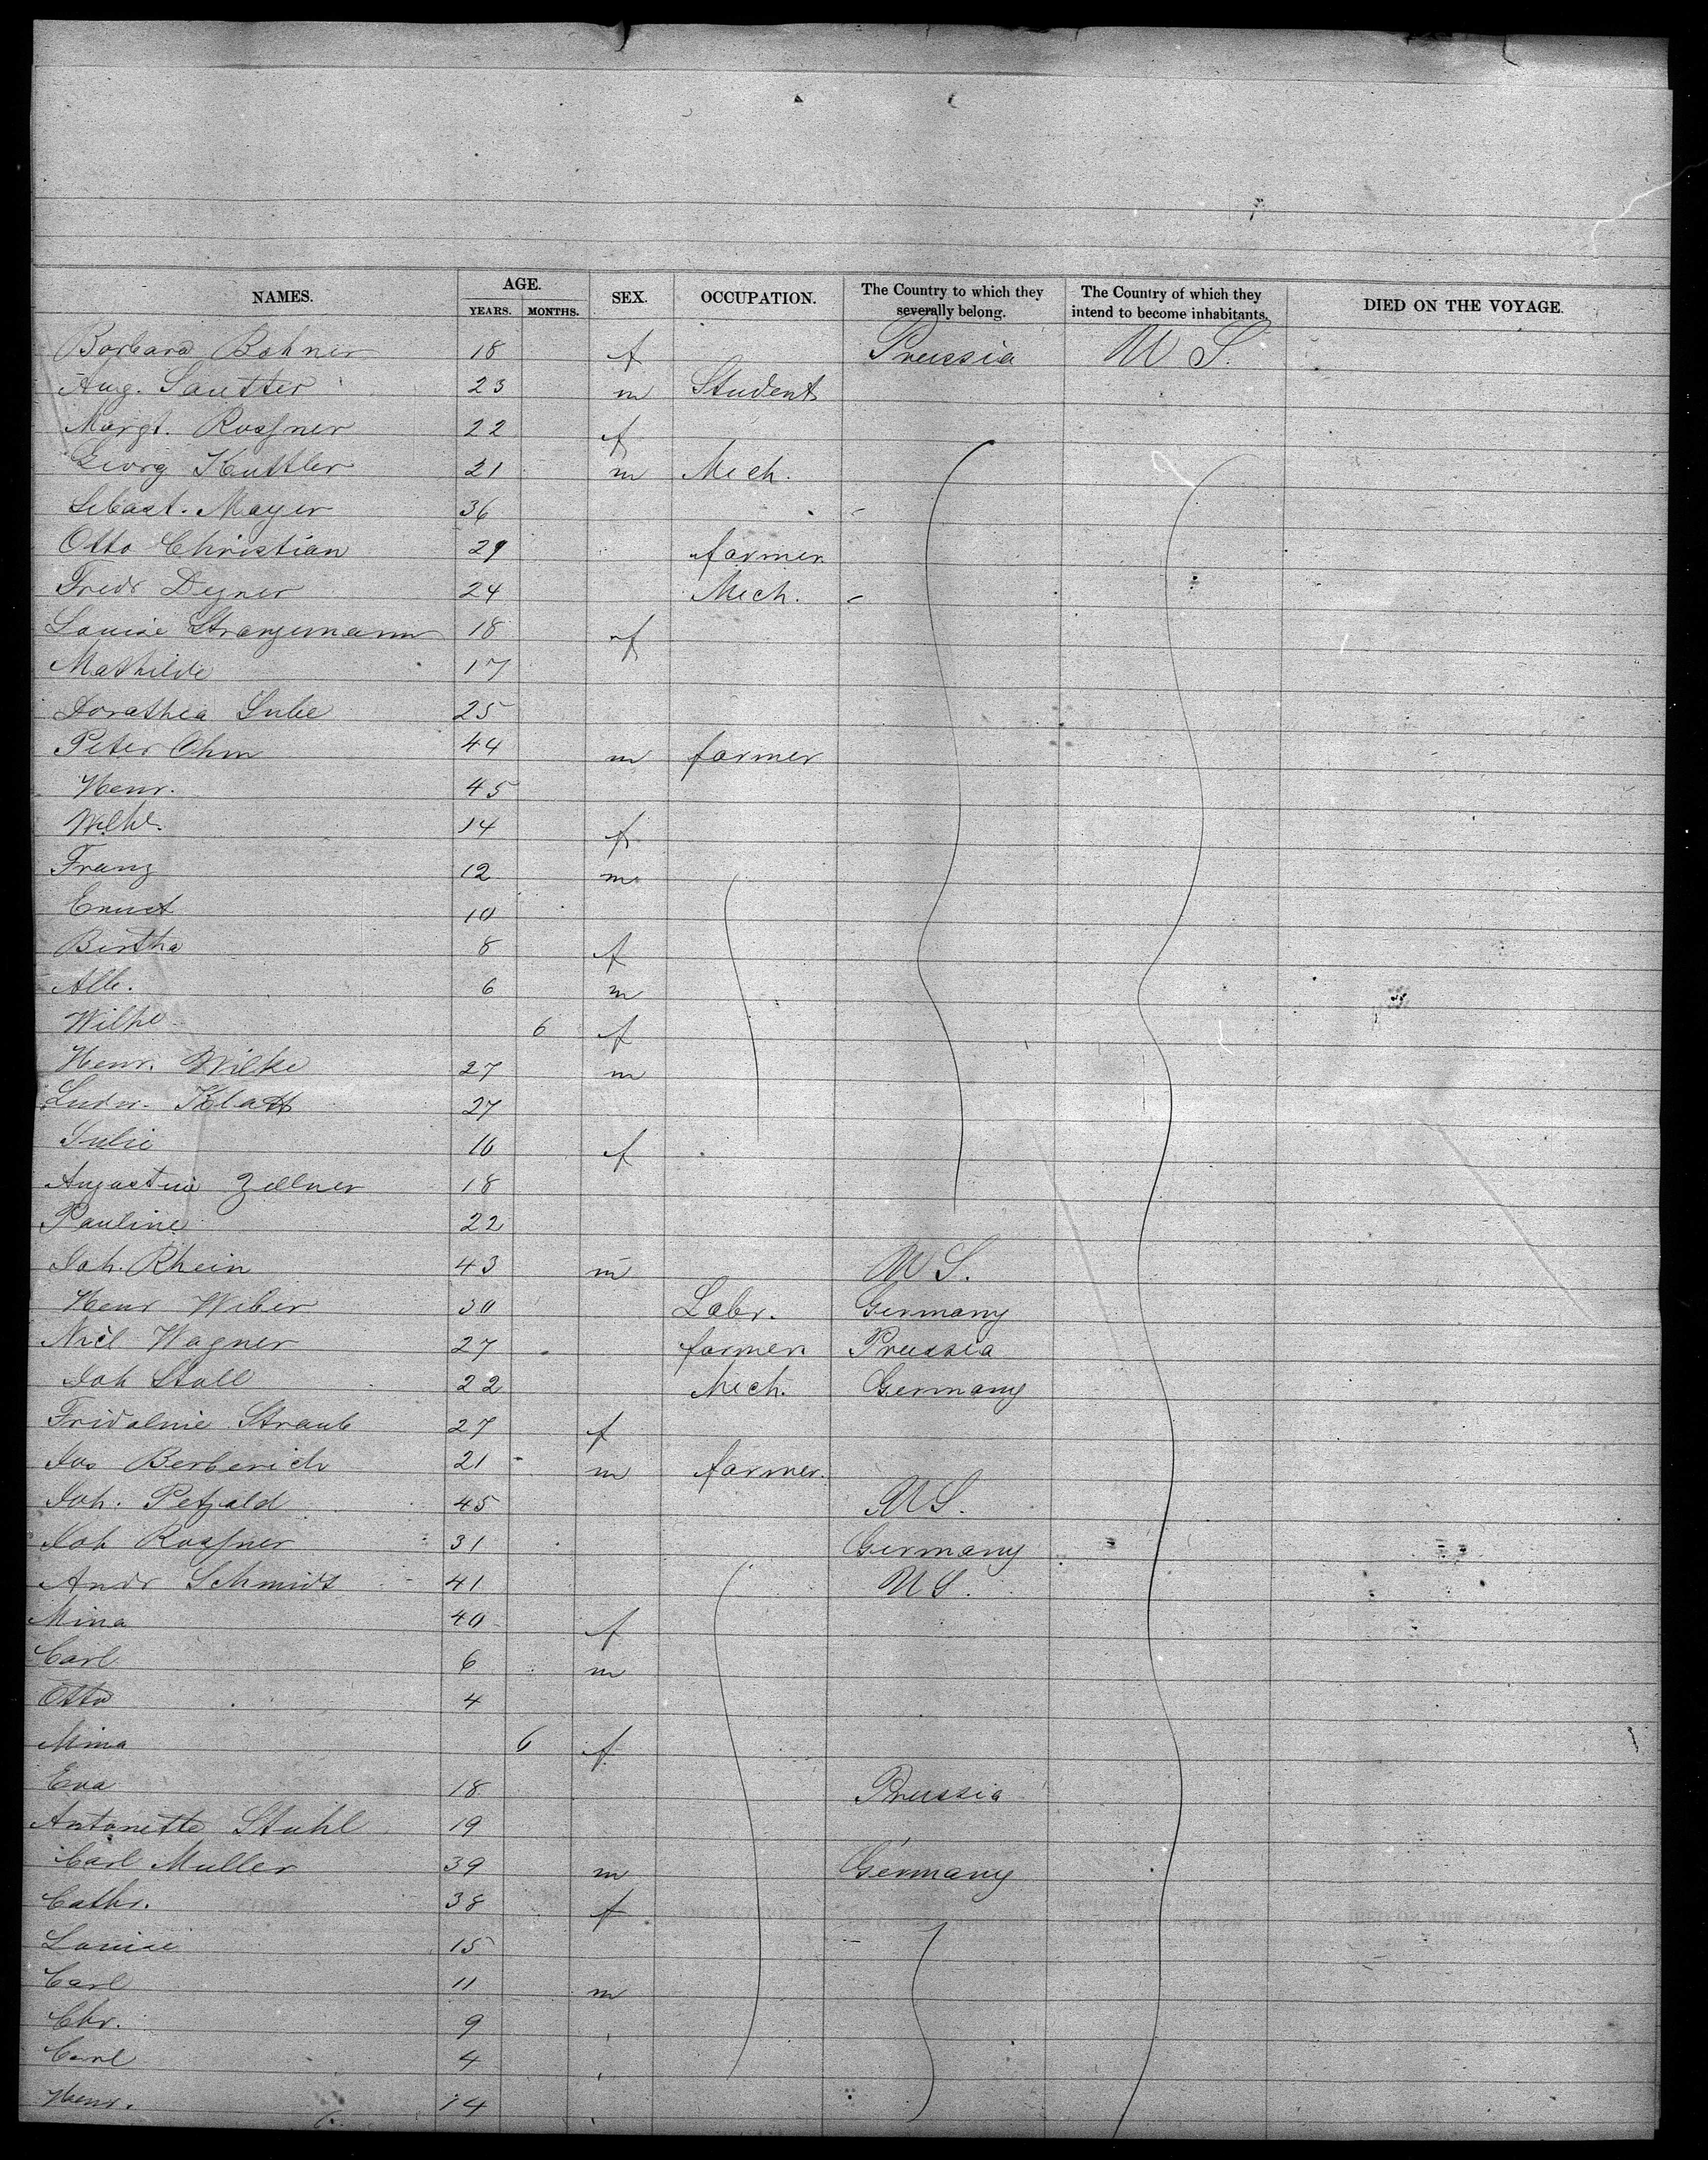 NAMES. AGE. SEX. OCCUPATION. The Country to which they severally belong. The Country of which they intend to become inhabitants. DIED ON THE VOYAGE.
YEARS. MONTHS.
Barbara Bohner 18 f Prussia U S.
Aug. Sautter 23 m Student
Margt. Rossner 22 f
Georg Kuttler 21 m Mech.
Sebast. Mayer 36
Otto Christian 29 farmer
Fredr Degner 24 Mech.
Louise Strangemann 18 f
Mathilde 17
Dorathea Lube 25
Peter Ohm 44 m farmer
Henr. 45
Wilhl. 14 f
Franz 12 m
Ernst 10
Bertha 8 f
Alb. 6 m
Wilhl 6 f
Henr. Wilke 27 m
Ludw. Klatt 27
Julie 16 f
Augustine Zellner 18
Pauline 22
Joh. Rhein 43 m U S.
Henr Weber 30 Labr. Germany
Nicl Wagner 27 farmer Prussia
Joh Stoll 22 Mech. Germany
Fridoline Straub 27 f
Jos Berberich 21 m farmer.
Joh. Petzold 45 U S.
Joh Rossner 31 Germany
Andr Schmidt 41 U S.
Mina 40 f
Carl 6 m
Otto 4
Mina 6 f
Eva 18 Prussia
Antonette Stuhl 19
Carl Muller 39 m Germany
Cathr. 38 f
Louise 15
Carl 11 m
Chr. 9
Carl 4
Henr. 14